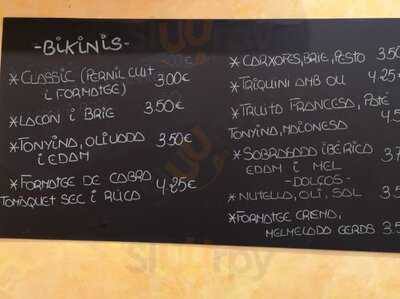 -BIKINIS-
*CLASSIC (PERNIL CUIT 3.00€
I FORMATGE)
*LACON I BRIE 3.50€
*TONYINA, OLIVADA 3.50€
I EDAM
*FORMATGE DE CABRA 4.25€
TOMÀQUET SEC I RÚCA
*CARXOFES, BRIE, PESTO 3.50
*TRIQUINI AMB OU 4.25€
*TRUITA FRANCESA, PATÉ 4.5
TONYINA, MAIONESA
*SOBRASADA IBÉRICA 3.7
EDAM I MEL
-DOLÇOS-
*NUTELLA, OLI, SAL 3.5
*FORMATGE CREMA, 3.5
MELMELADA GERDS